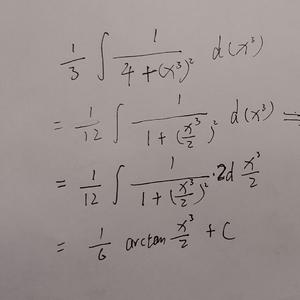 1/3 ∫ 1/(4+(x³)²) d(x³)
= 1/12 ∫ 1/(1+(x³/2)²) d(x³) =
= 1/12 ∫ 1/(1+(x³/2)²) ·2d x³/2
= 1/6 arctan x³/2 + C